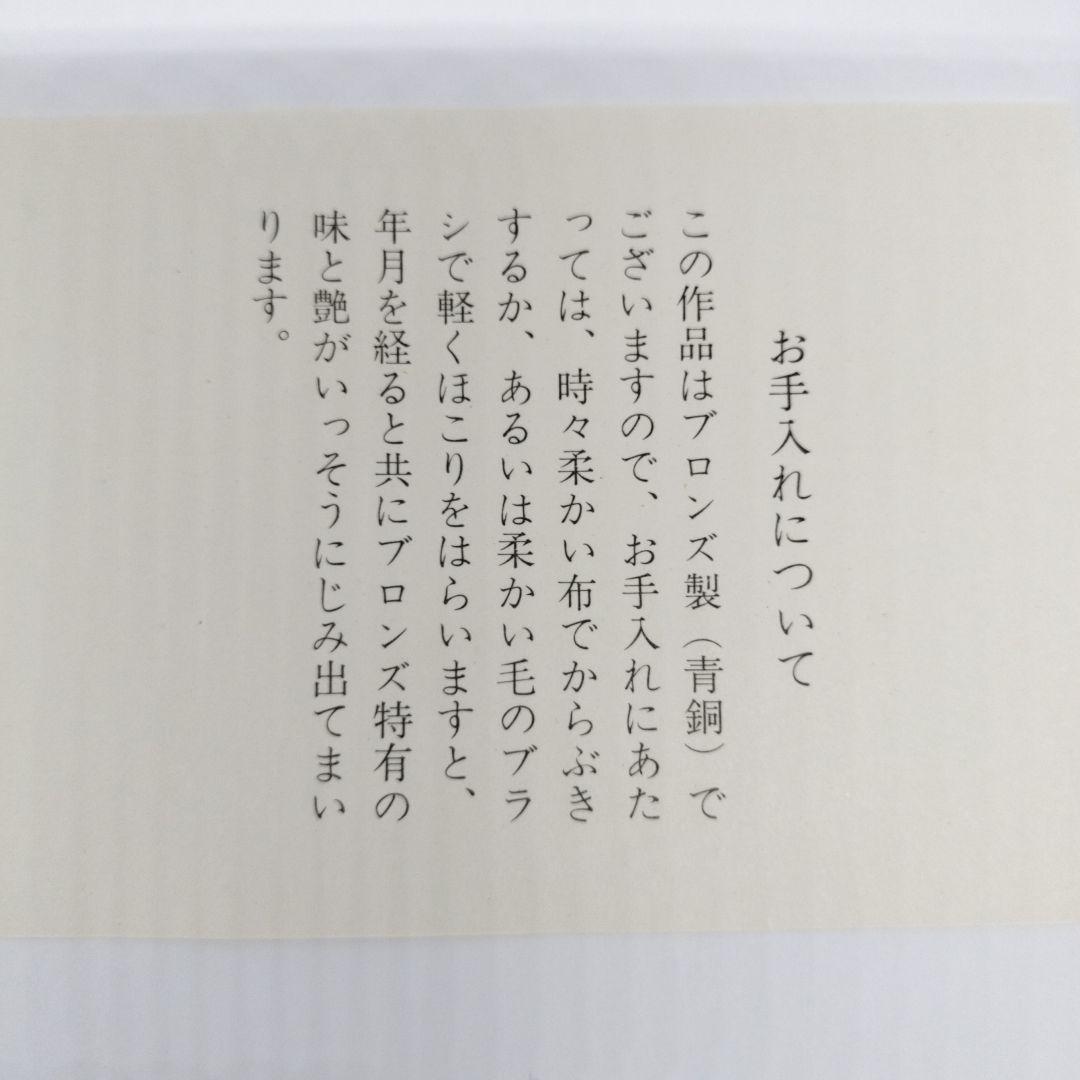 お手入れについて
この作品はブロンズ製（青銅）で
ございますので、お手入れにあた
っては、時々柔かい布でからぶき
するか、あるいは柔かい毛のブラ
シで軽くほこりをはらいますと、
年月を経ると共にブロンズ特有の
味と艶がいっそうにじみ出てまい
ります。